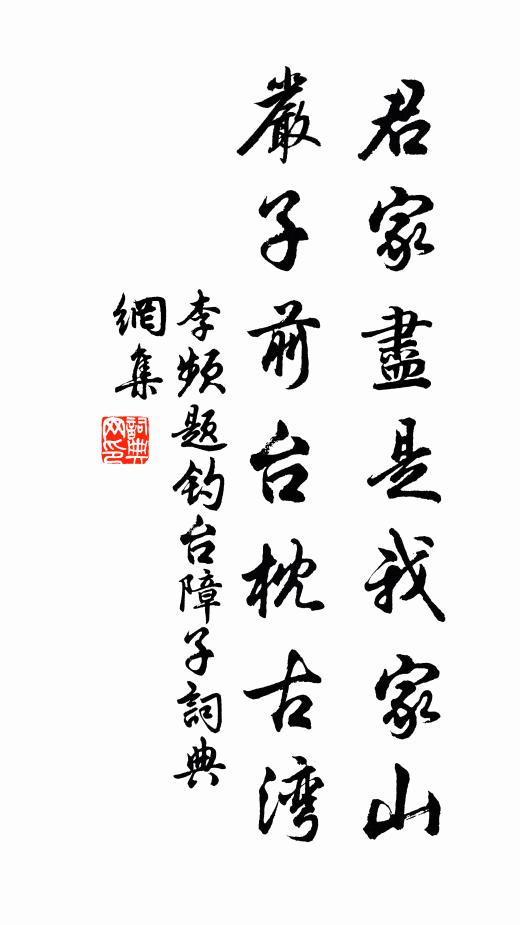 君家盡是我家山
嚴子前台枕古湾
李频题钓台障子詞典
網集
詞典
网印